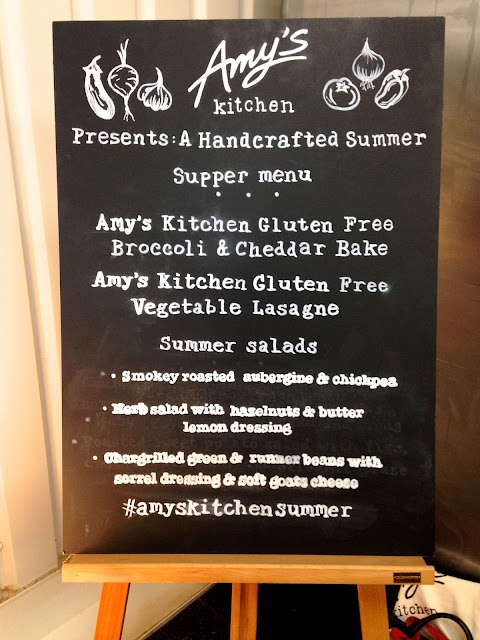 Amy's
kitchen
Presents: A Handcrafted Summer
Supper menu
Amy's Kitchen Gluten Free
Broccoli & Cheddar Bake
Amy's Kitchen Gluten Free
Vegetable Lasagne
Summer salads
• Smokey roasted aubergine & chickpea
• Herb salad with hazelnuts & butter
lemon dressing
• Chargrilled green & runner beans with
sorrel dressing & soft goats cheese
#amyskitchensummer
Amy's
kitchen